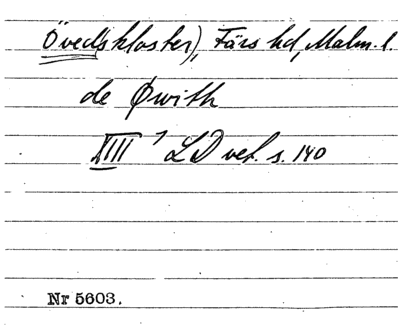 Övedskloster), Färs hd, Malm. l.
de Øwith
XIII 7 LD vet. s. 140
Nr 5603.